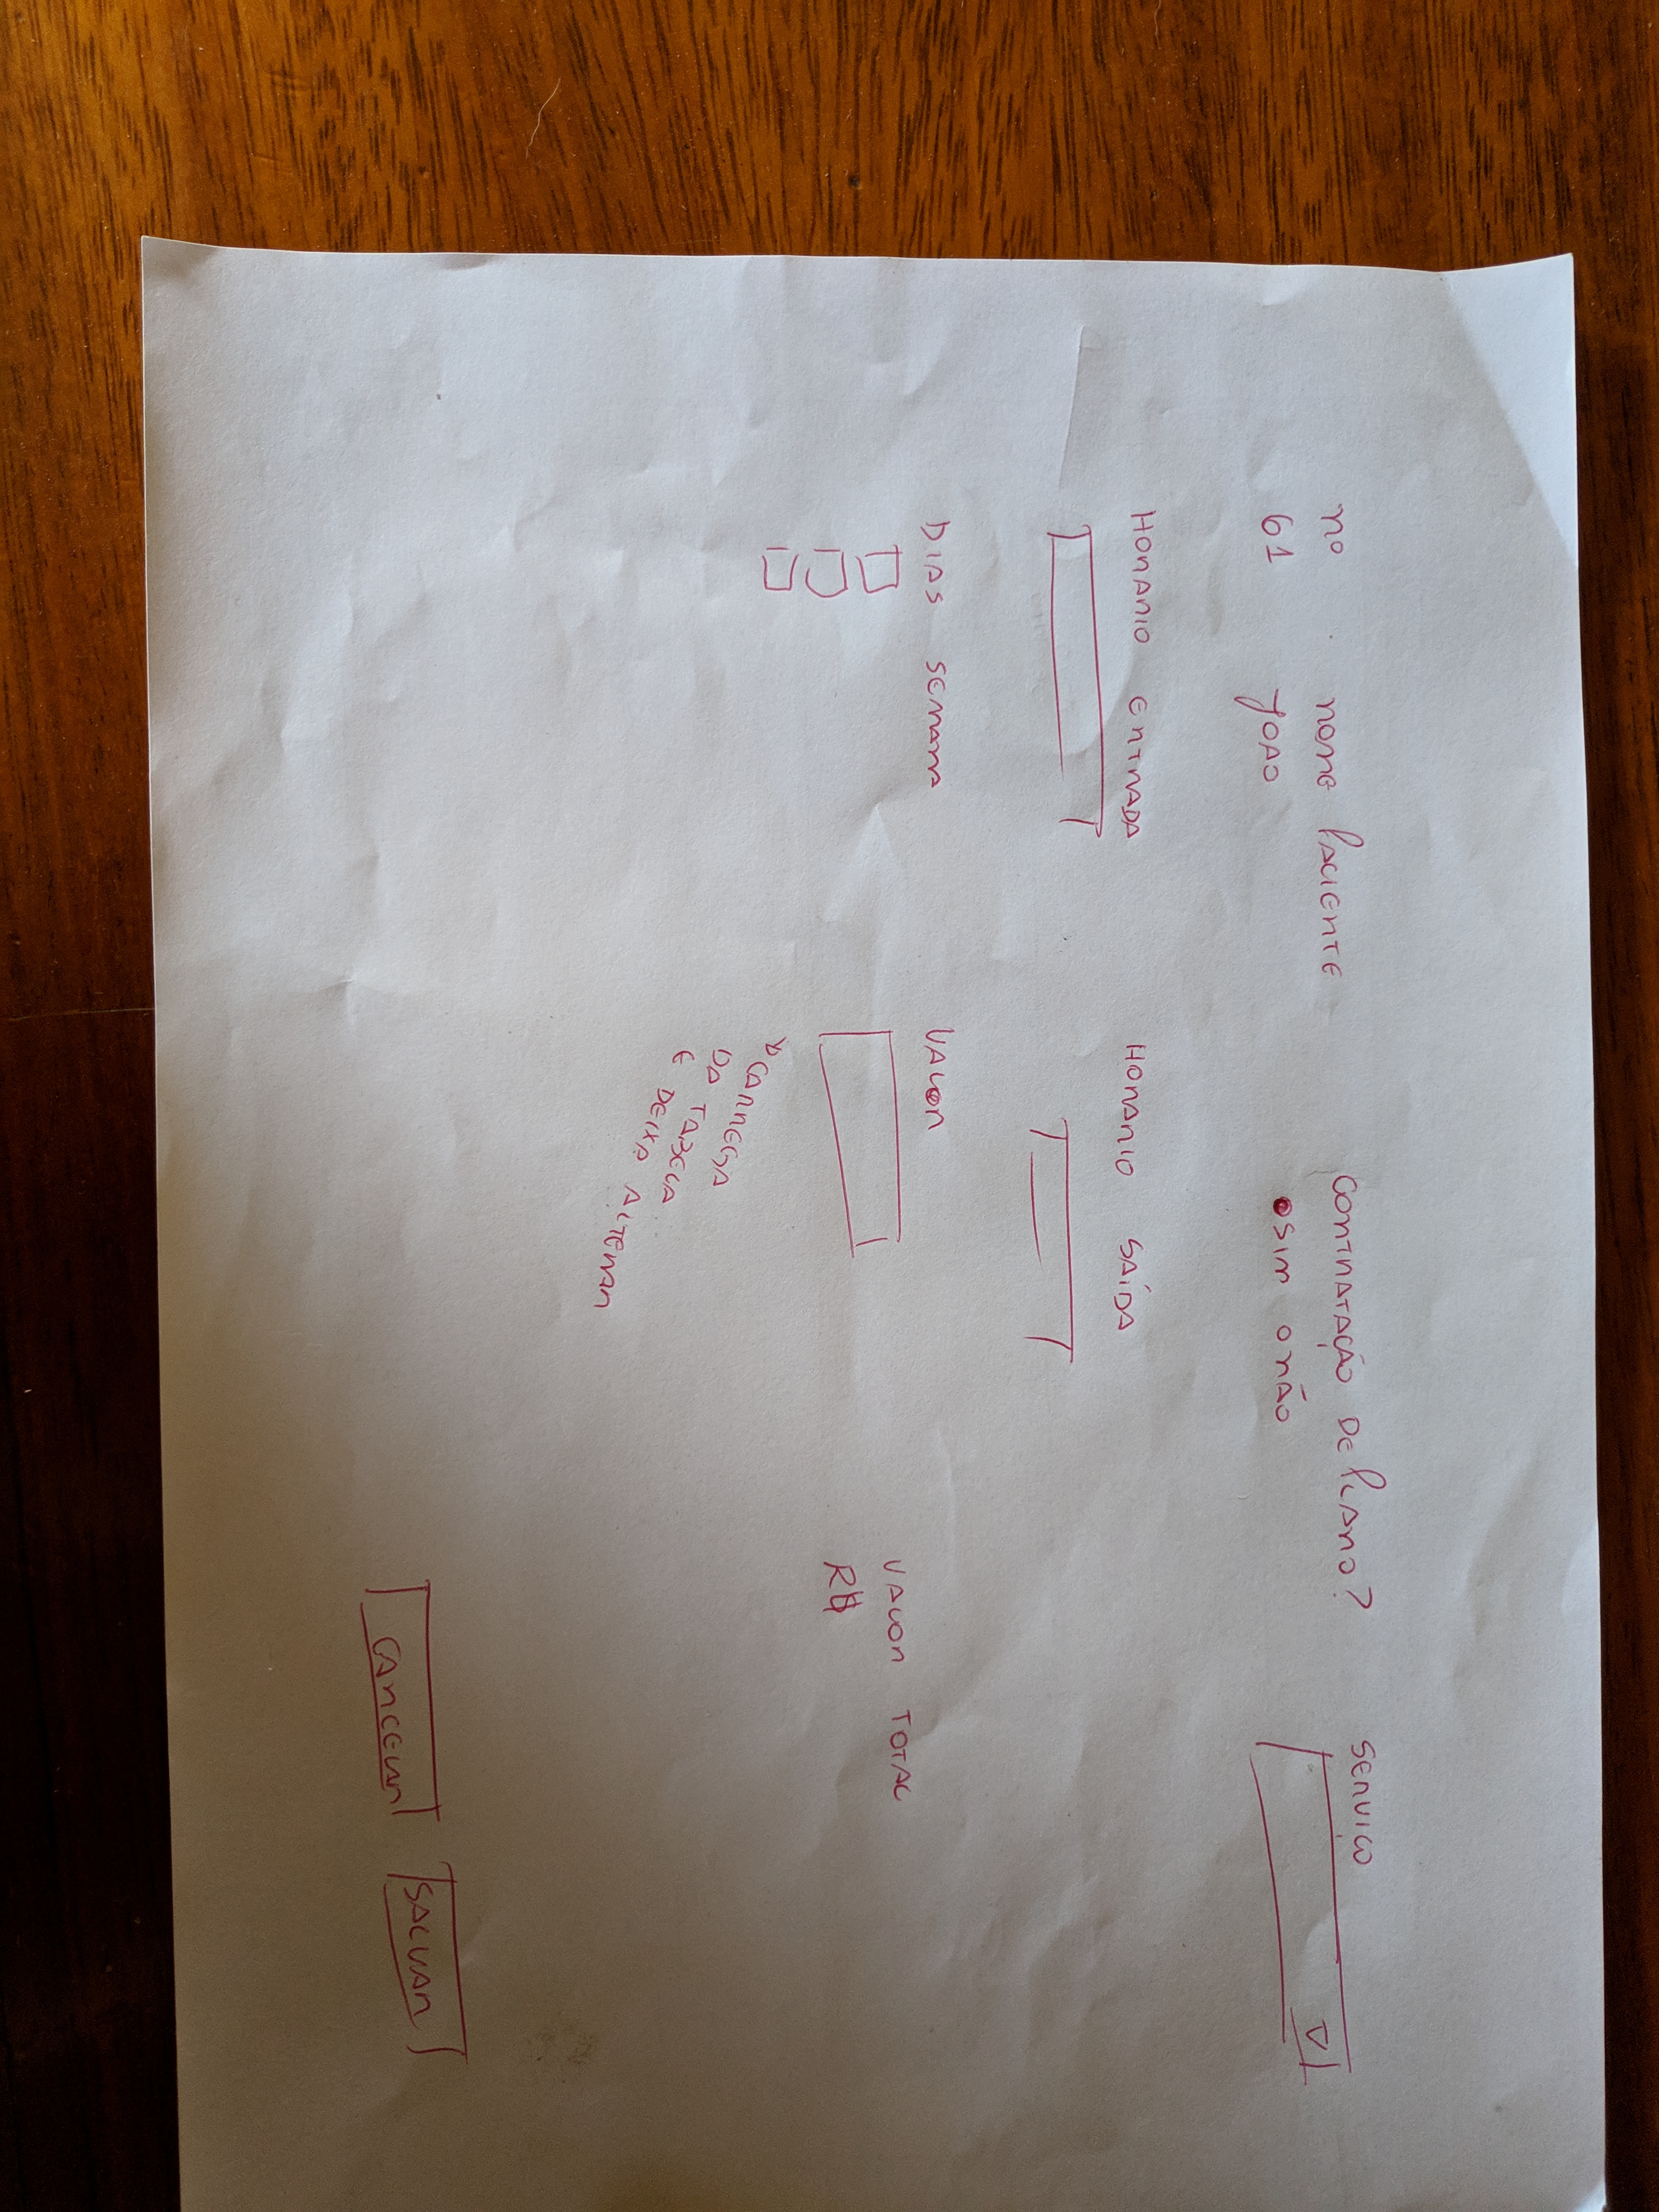 nº nome Paciente Contratação de Plano? Serviço
61 João sim não
Horario entrada Horario saída
Dias semana Valor Valor total
R$
Carrega
da tabela
e deixa alterar
Cancelar Salvar